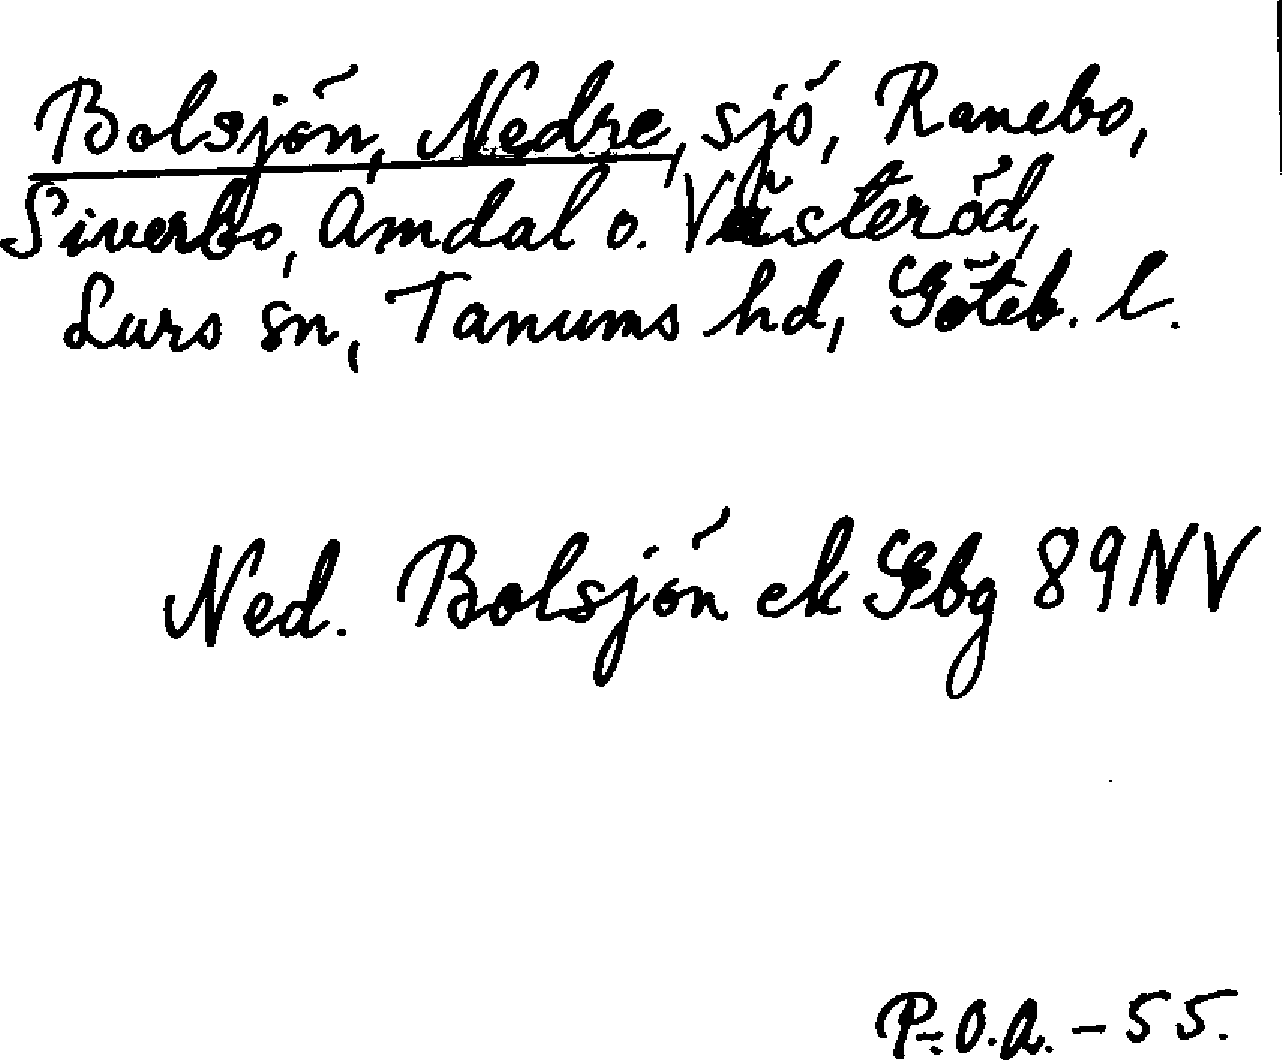 Bolsjön, Nedre, sjö, Ranebo,
Siverbo, Amdal o. Västeröd,
Lurs sn, Tanums hd, Göteb. l.
Ned. Bolsjön ek Gbg 89NV
P.O.A. - 55.